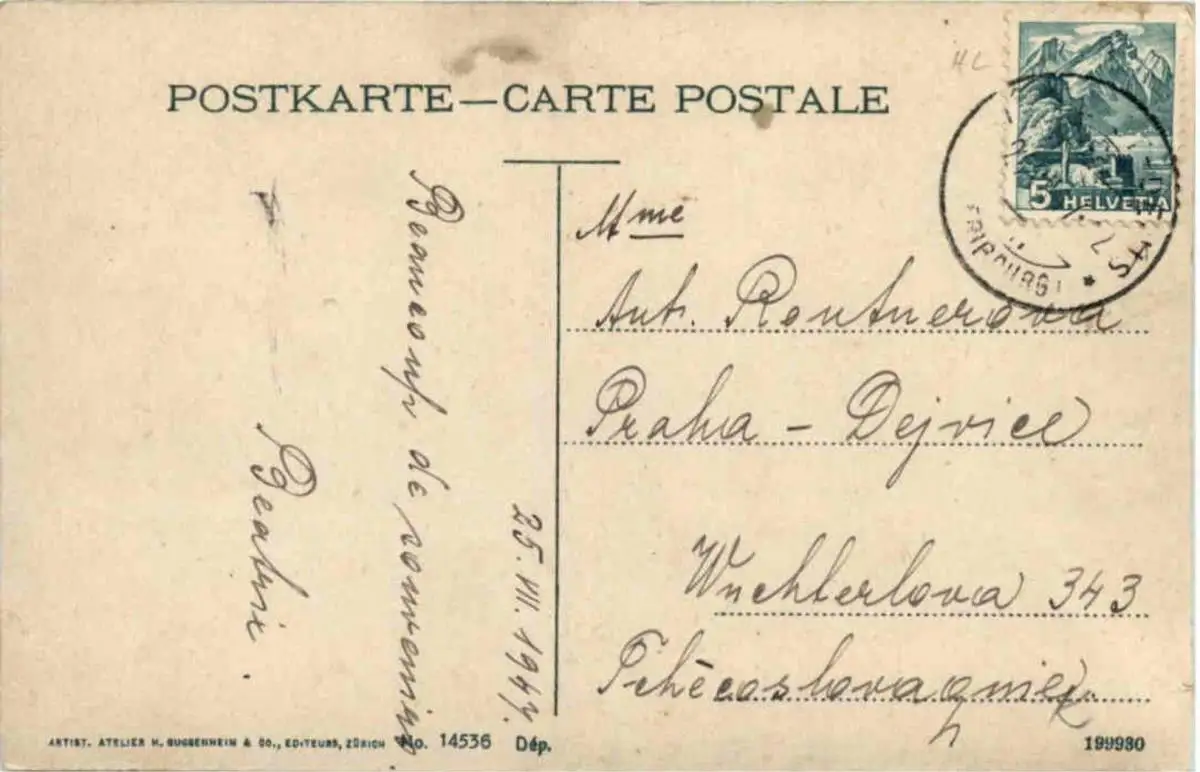 POSTKARTE—CARTE POSTALE
5 HELVETIA
(FRIBOURG)
25. VII. 1947.
Beaucoup de souvenirs
Beatrix.
Mme
Ant. Rentnerova
Praha - Dejvice
Wuchterlova 343
Tchécoslovaquie
ARTIST. ATELIER H. GUGGENHEIM & CO., EDITEURS, ZÜRICH No. 14536 Dép.
199980